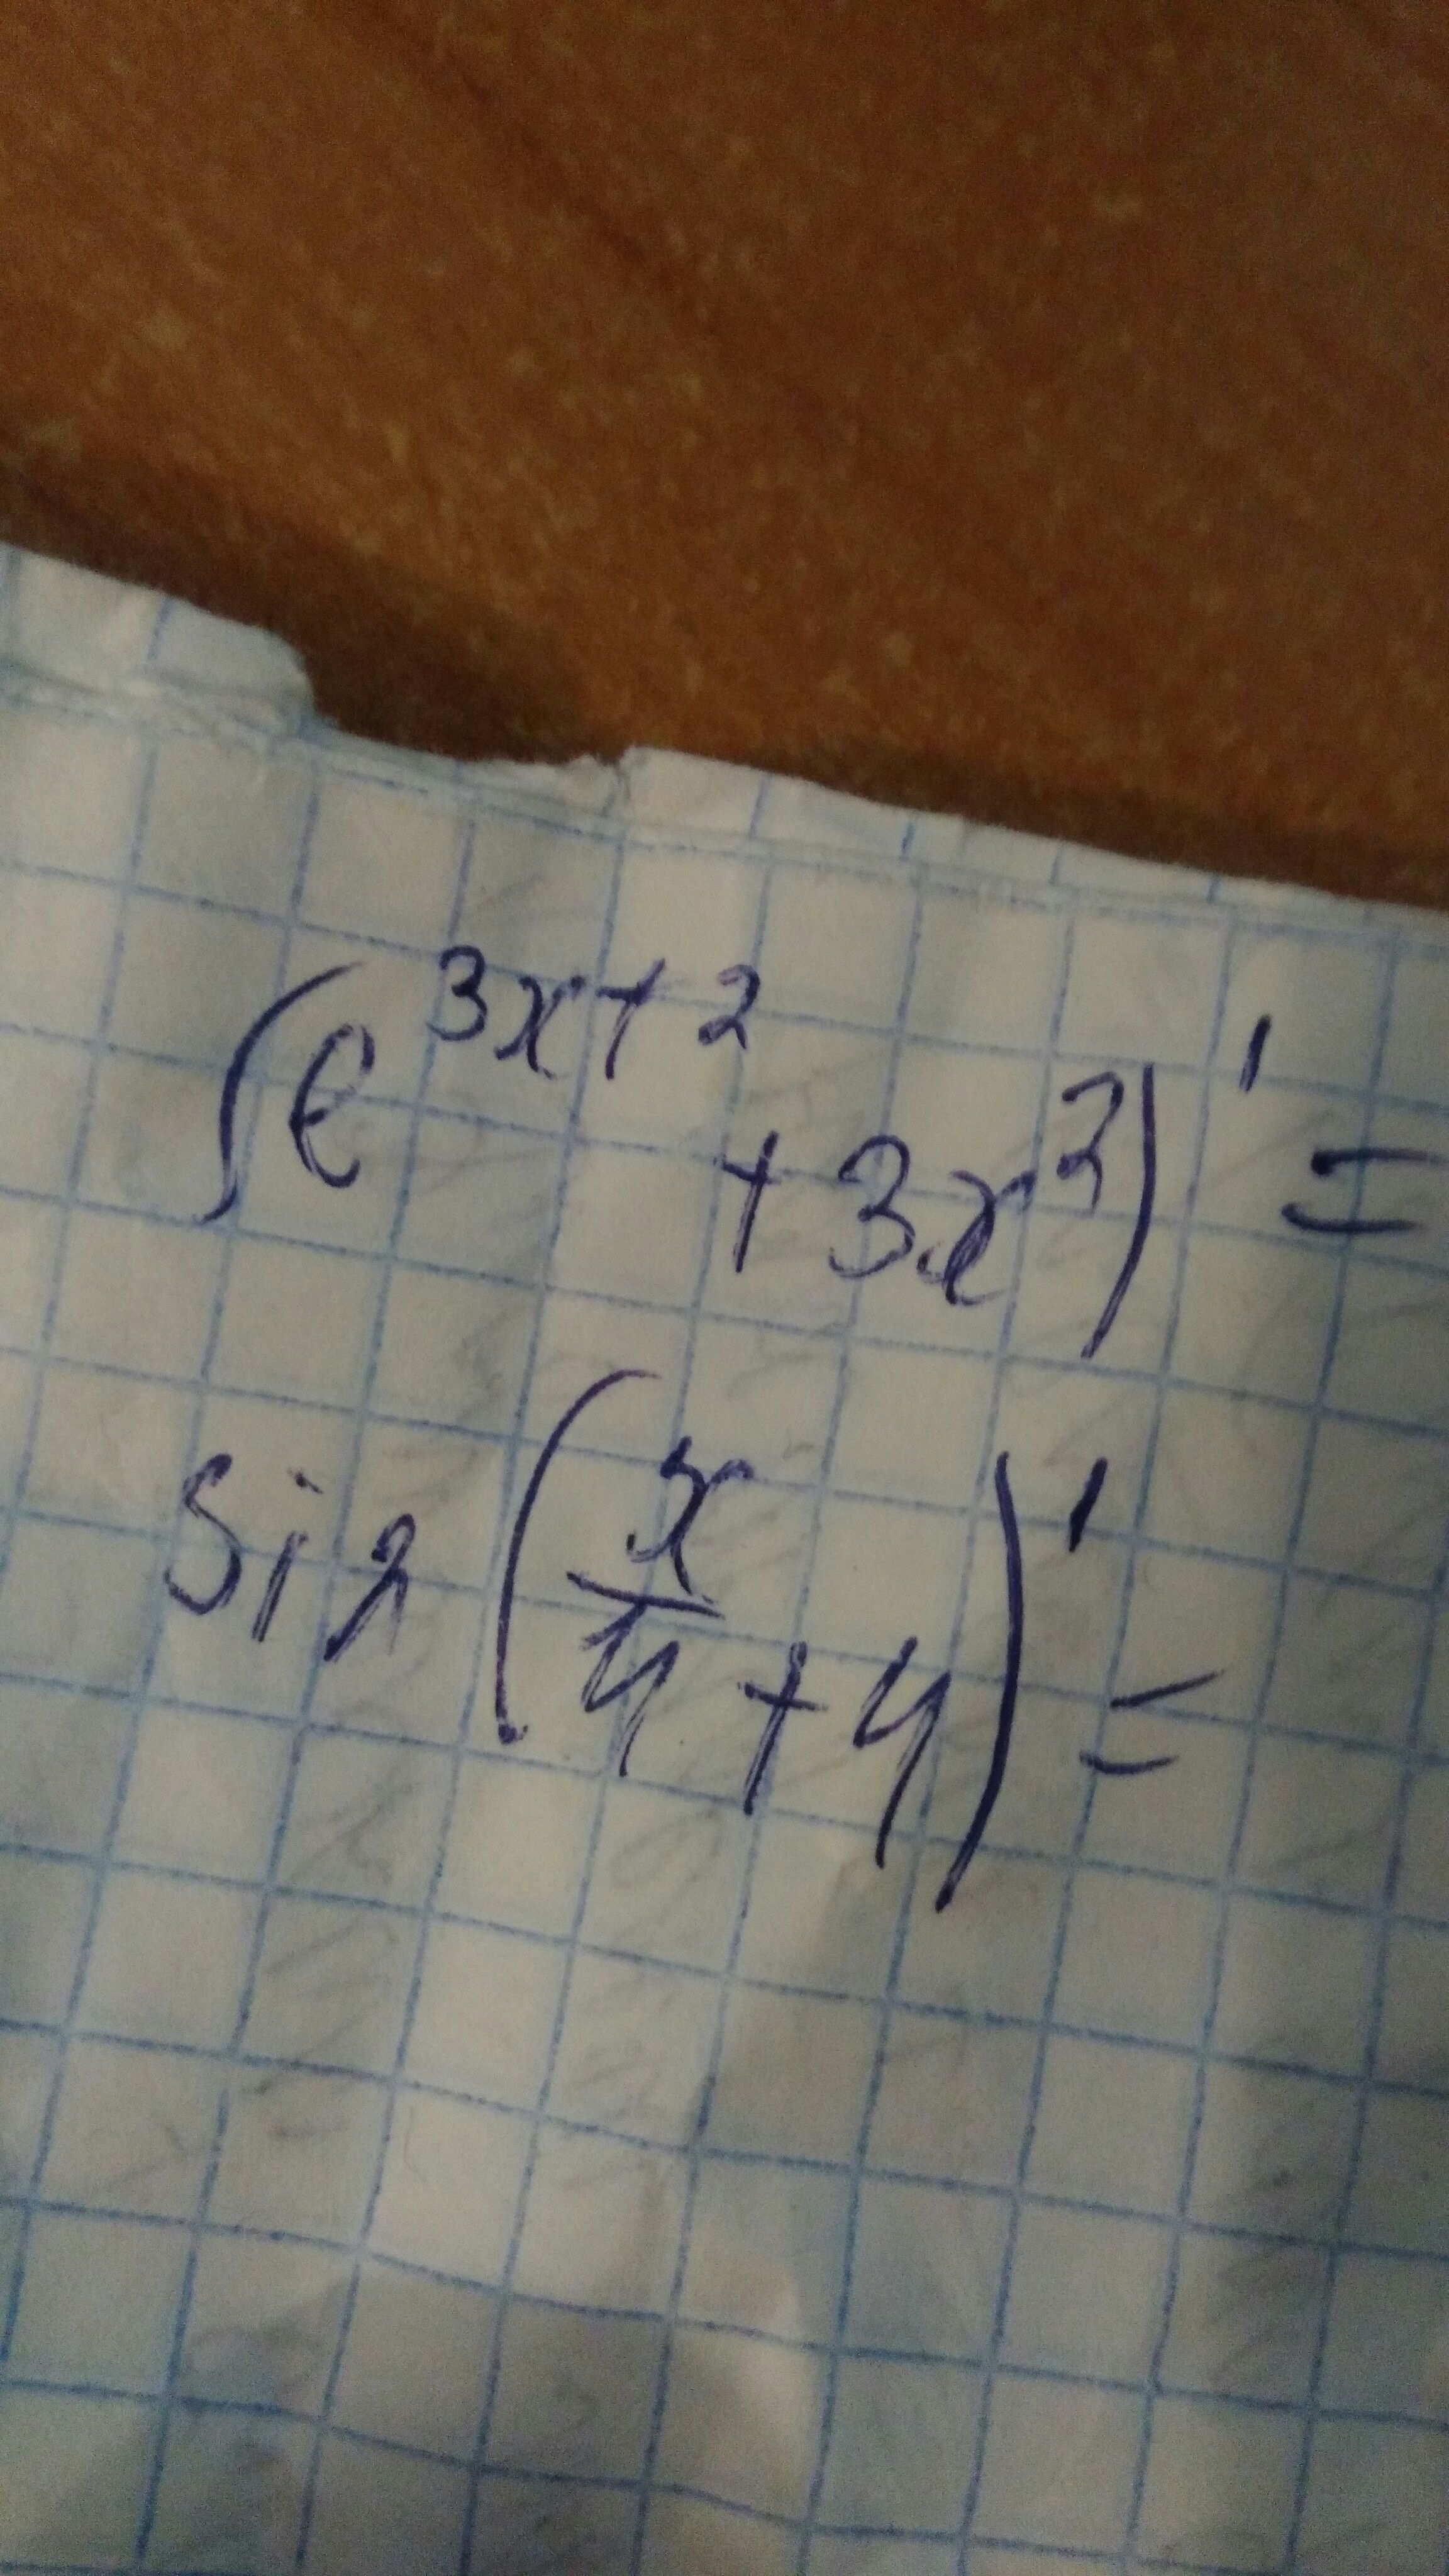 (e^{3x+2} + 3x^2)' =
sin (x/4 + 4)' =